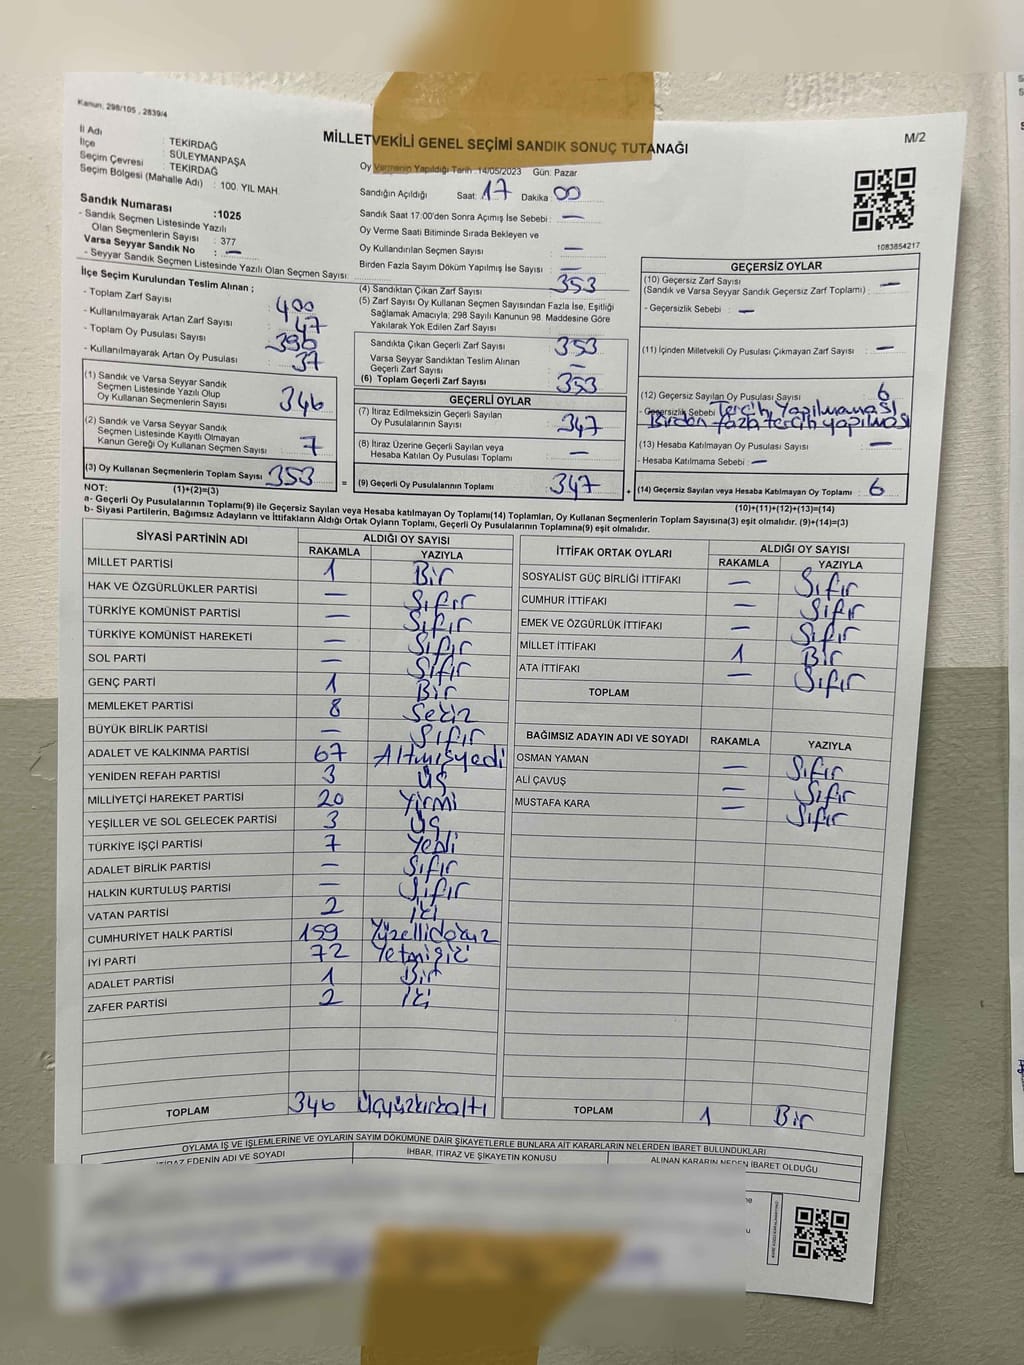 Kanun, 298/105 , 2839/4
MİLLETVEKİLİ GENEL SEÇİMİ SANDIK SONUÇ TUTANAĞI
M/2
İl Adı : TEKİRDAĞ
İlçe : SÜLEYMANPAŞA
Seçim Çevresi : TEKİRDAĞ
Seçim Bölgesi (Mahalle Adı) : 100. YIL MAH.
Sandık Numarası :1025
- Sandık Seçmen Listesinde Yazılı
Olan Seçmenlerin Sayısı : 377
Varsa Seyyar Sandık No : —
- Seyyar Sandık Seçmen Listesinde Yazılı Olan Seçmen Sayısı:
Oy Vermenin Yapıldığı Tarih :14/05/2023 Gün: Pazar
Sandığın Açıldığı Saat: 17 Dakika: 00
Sandık Saat 17:00'den Sonra Açımış İse Sebebi : —
Oy Verme Saati Bitiminde Sırada Bekleyen ve
Oy Kullandırılan Seçmen Sayısı : —
Birden Fazla Sayım Döküm Yapılmış İse Sayısı : —
1083854217
İlçe Seçim Kurulundan Teslim Alınan ;
- Toplam Zarf Sayısı : 400
- Kullanılmayarak Artan Zarf Sayısı : 47
- Toplam Oy Pusulası Sayısı : 390
- Kullanılmayarak Artan Oy Pusulası : 37
(1) Sandık ve Varsa Seyyar Sandık
Seçmen Listesinde Yazılı Olup
Oy Kullanan Seçmenlerin Sayısı : 346
(2) Sandık ve Varsa Seyyar Sandık
Seçmen Listesinde Kayıtlı Olmayan
Kanun Gereği Oy Kullanan Seçmen Sayısı : 7
(3) Oy Kullanan Seçmenlerin Toplam Sayısı : 353
(1)+(2)=(3)
(4) Sandıktan Çıkan Zarf Sayısı : 353
(5) Zarf Sayısı Oy Kullanan Seçmen Sayısından Fazla İse, Eşitliği
Sağlamak Amacıyla, 298 Sayılı Kanunun 98. Maddesine Göre
Yakılarak Yok Edilen Zarf Sayısı :
Sandıkta Çıkan Geçerli Zarf Sayısı : 353
Varsa Seyyar Sandıktan Teslim Alınan
Geçerli Zarf Sayısı : —
(6) Toplam Geçerli Zarf Sayısı : 353
GEÇERLİ OYLAR
(7) İtiraz Edilmeksizin Geçerli Sayılan
Oy Pusulalarının Sayısı : 347
(8) İtiraz Üzerine Geçerli Sayılan veya
Hesaba Katılan Oy Pusulası Toplamı : —
= (9) Geçerli Oy Pusulalarının Toplamı : 347 +
GEÇERSİZ OYLAR
(10) Geçersiz Zarf Sayısı
(Sandık ve Varsa Seyyar Sandık Geçersiz Zarf Toplamı) : —
- Geçersizlik Sebebi : —
(11) İçinden Milletvekili Oy Pusulası Çıkmayan Zarf Sayısı : —
(12) Geçersiz Sayılan Oy Pusulası Sayısı : 6
- Geçersizlik Sebebi : Tercih Yapılmaması
Birden fazla tercih yapılması
(13) Hesaba Katılmayan Oy Pusulası Sayısı : —
- Hesaba Katılmama Sebebi : —
(14) Geçersiz Sayılan veya Hesaba Katılmayan Oy Toplamı : 6
(10)+(11)+(12)+(13)=(14)
NOT:
a- Geçerli Oy Pusulalarının Toplamı(9) ile Geçersiz Sayılan veya Hesaba katılmayan Oy Toplamı(14) Toplamları, Oy Kullanan Seçmenlerin Toplam Sayısına(3) eşit olmalıdır. (9)+(14)=(3)
b- Siyasi Partilerin, Bağımsız Adayların ve İttifakların Aldığı Ortak Oyların Toplamı, Geçerli Oy Pusulalarının Toplamına(9) eşit olmalıdır.
SİYASİ PARTİNİN ADI ALDIĞI OY SAYISI
RAKAMLA YAZIYLA
MİLLET PARTİSİ 1 Bir
HAK VE ÖZGÜRLÜKLER PARTİSİ — Sıfır
TÜRKİYE KOMÜNİST PARTİSİ — Sıfır
TÜRKİYE KOMÜNİST HAREKETİ — Sıfır
SOL PARTİ — Sıfır
GENÇ PARTİ 1 Bir
MEMLEKET PARTİSİ 8 Sekiz
BÜYÜK BİRLİK PARTİSİ — Sıfır
ADALET VE KALKINMA PARTİSİ 67 Altmışyedi
YENİDEN REFAH PARTİSİ 3 Üç
MİLLİYETÇİ HAREKET PARTİSİ 20 Yirmi
YEŞİLLER VE SOL GELECEK PARTİSİ 3 Üç
TÜRKİYE İŞÇİ PARTİSİ 7 Yedi
ADALET BİRLİK PARTİSİ — Sıfır
HALKIN KURTULUŞ PARTİSİ — Sıfır
VATAN PARTİSİ 2 İki
CUMHURİYET HALK PARTİSİ 159 Yüzellidokuz
İYİ PARTİ 72 Yetmişiki
ADALET PARTİSİ 1 Bir
ZAFER PARTİSİ 2 İki
TOPLAM 346 Üçyüzkırkaltı
İTTİFAK ORTAK OYLARI ALDIĞI OY SAYISI
RAKAMLA YAZIYLA
SOSYALİST GÜÇ BİRLİĞİ İTTİFAKI — Sıfır
CUMHUR İTTİFAKI — Sıfır
EMEK VE ÖZGÜRLÜK İTTİFAKI — Sıfır
MİLLET İTTİFAKI 1 Bir
ATA İTTİFAKI — Sıfır
TOPLAM
BAĞIMSIZ ADAYIN ADI VE SOYADI RAKAMLA YAZIYLA
OSMAN YAMAN — Sıfır
ALİ ÇAVUŞ — Sıfır
MUSTAFA KARA — Sıfır
TOPLAM 1 Bir
OYLAMA İŞ VE İŞLEMLERİNE VE OYLARIN SAYIM DÖKÜMÜNE DAİR ŞİKAYETLERLE BUNLARA AİT KARARLARIN NELERDEN İBARET BULUNDUKLARI
İTİRAZ EDENİN ADI VE SOYADI İHBAR, İTİRAZ VE ŞİKAYETİN KONUSU ALINAN KARARIN NEDEN İBARET OLDUĞU